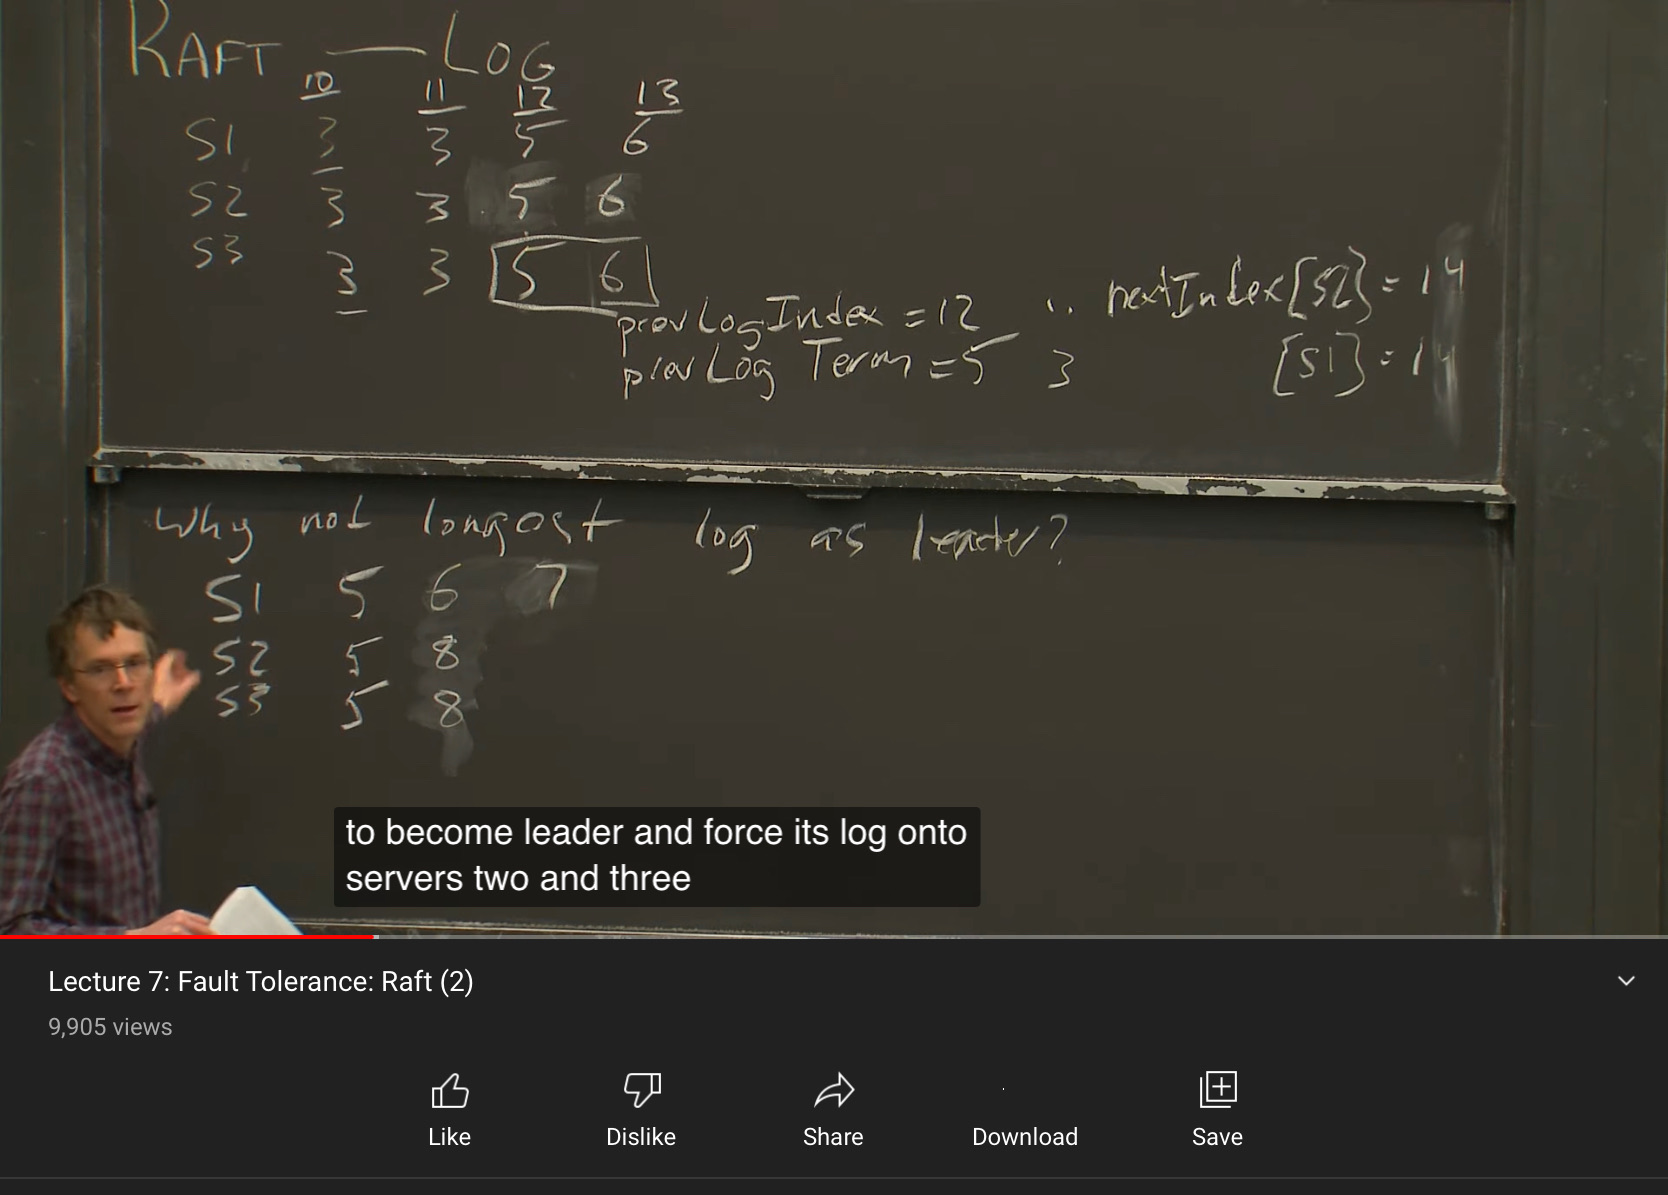 RAFT — LOG
10 11 12 13
S1 3 3 5 6
S2 3 3 5 6
S3 3 3 5 6
prevLogIndex = 12 .. nextIndex[S2] = 14
prevLogTerm = 5 3 [S1] = 14
Why not longest log as leader?
S1 5 6 7
S2 5 8
S3 5 8
to become leader and force its log onto
servers two and three
Lecture 7: Fault Tolerance: Raft (2)
9,905 views
Like Dislike Share Download Save